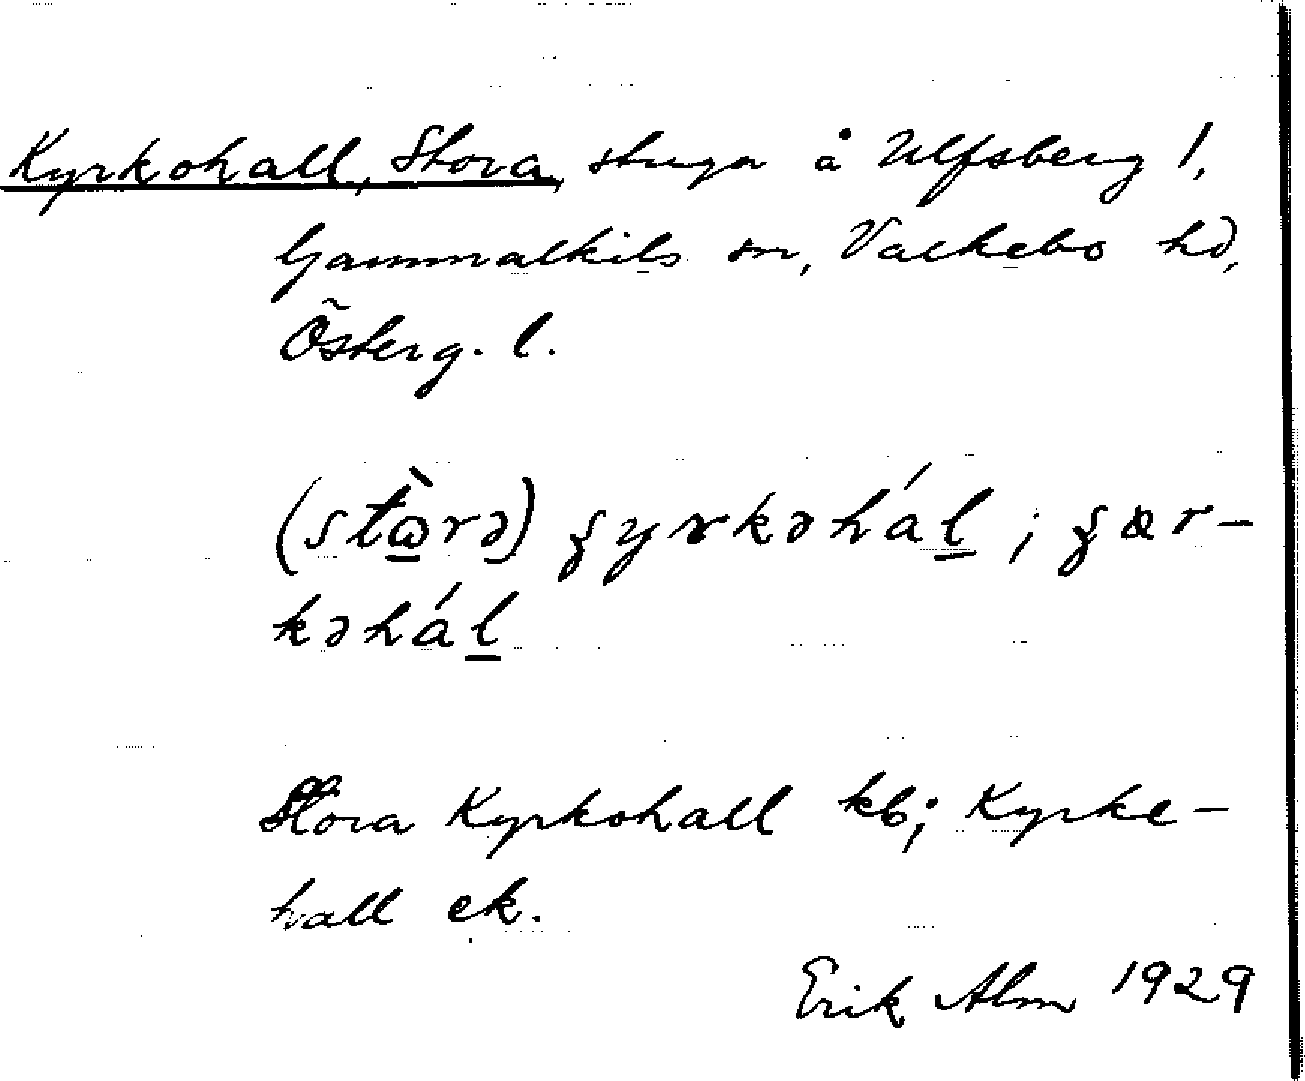 Kyrkohall, Stora, stuga å Ulfsberg 1,
Gammalkils sn, Valkebo hd,
Österg. l.
(stɷ̀rə) ʂyrkəhál ; ʂær-
kəhál
Stora Kyrkohall kb; Kyrke-
hall ek.
Erik Alm 1929